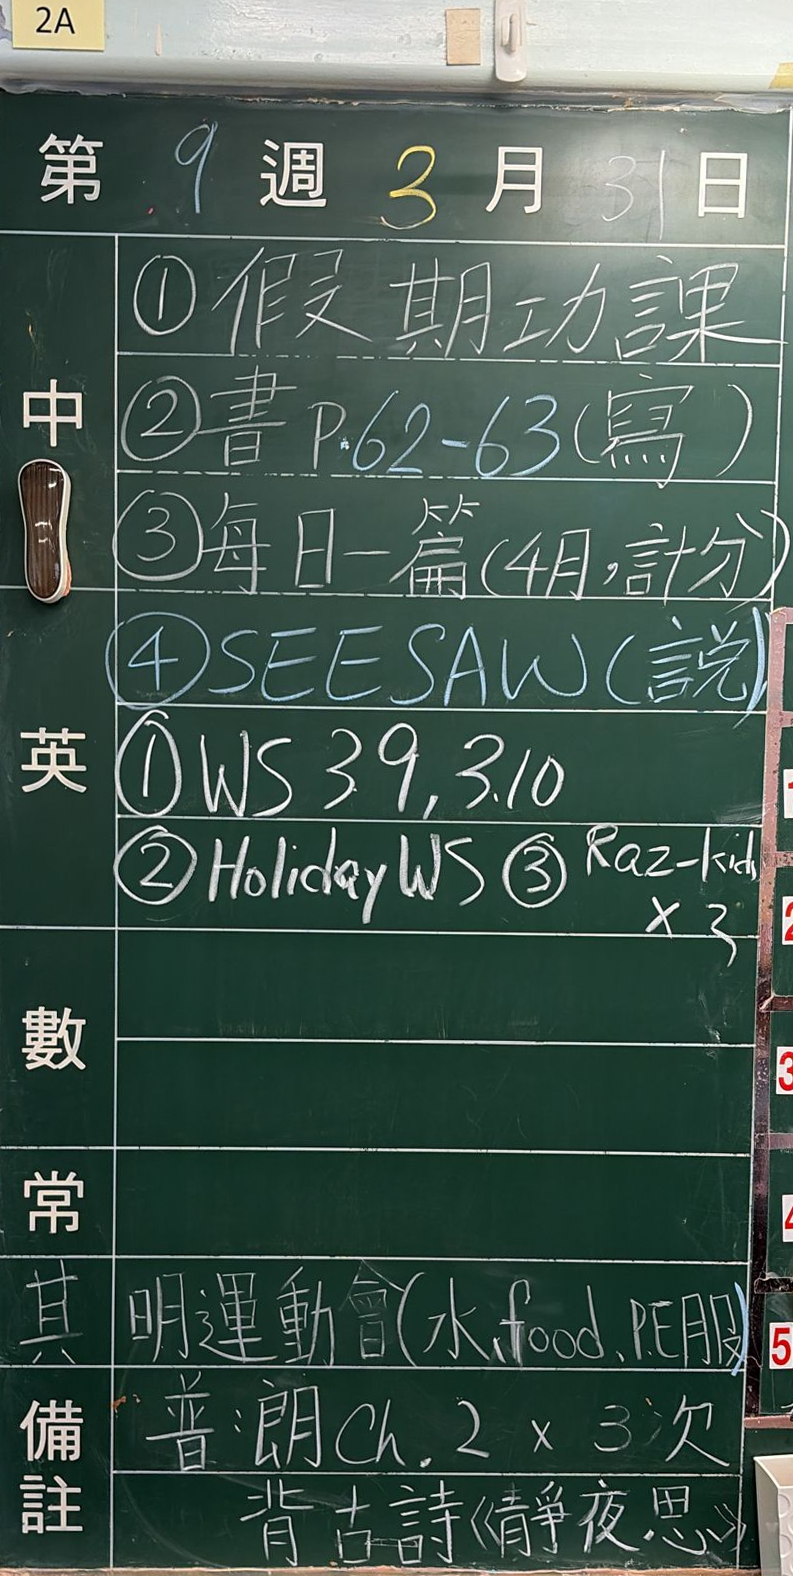 2A
第 9 週 3 月 31 日
中
①假期功課
②書 P.62-63(寫)
③每日一篇(4月,計分)
④SEESAW(説)
英
①WS 39, 3.10
②Holiday WS ③ Raz-kids
x 3
數
常
其 明運動會(水、food、P.E服)
備註
普:朗 Ch. 2 x 3次
背古詩《靜夜思》
1
2
3
4
5